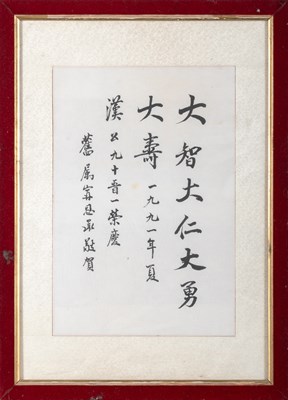 大智大仁大勇
大壽 一九九一年夏
漢公九十晉一榮慶
舊屬 恩承敬賀